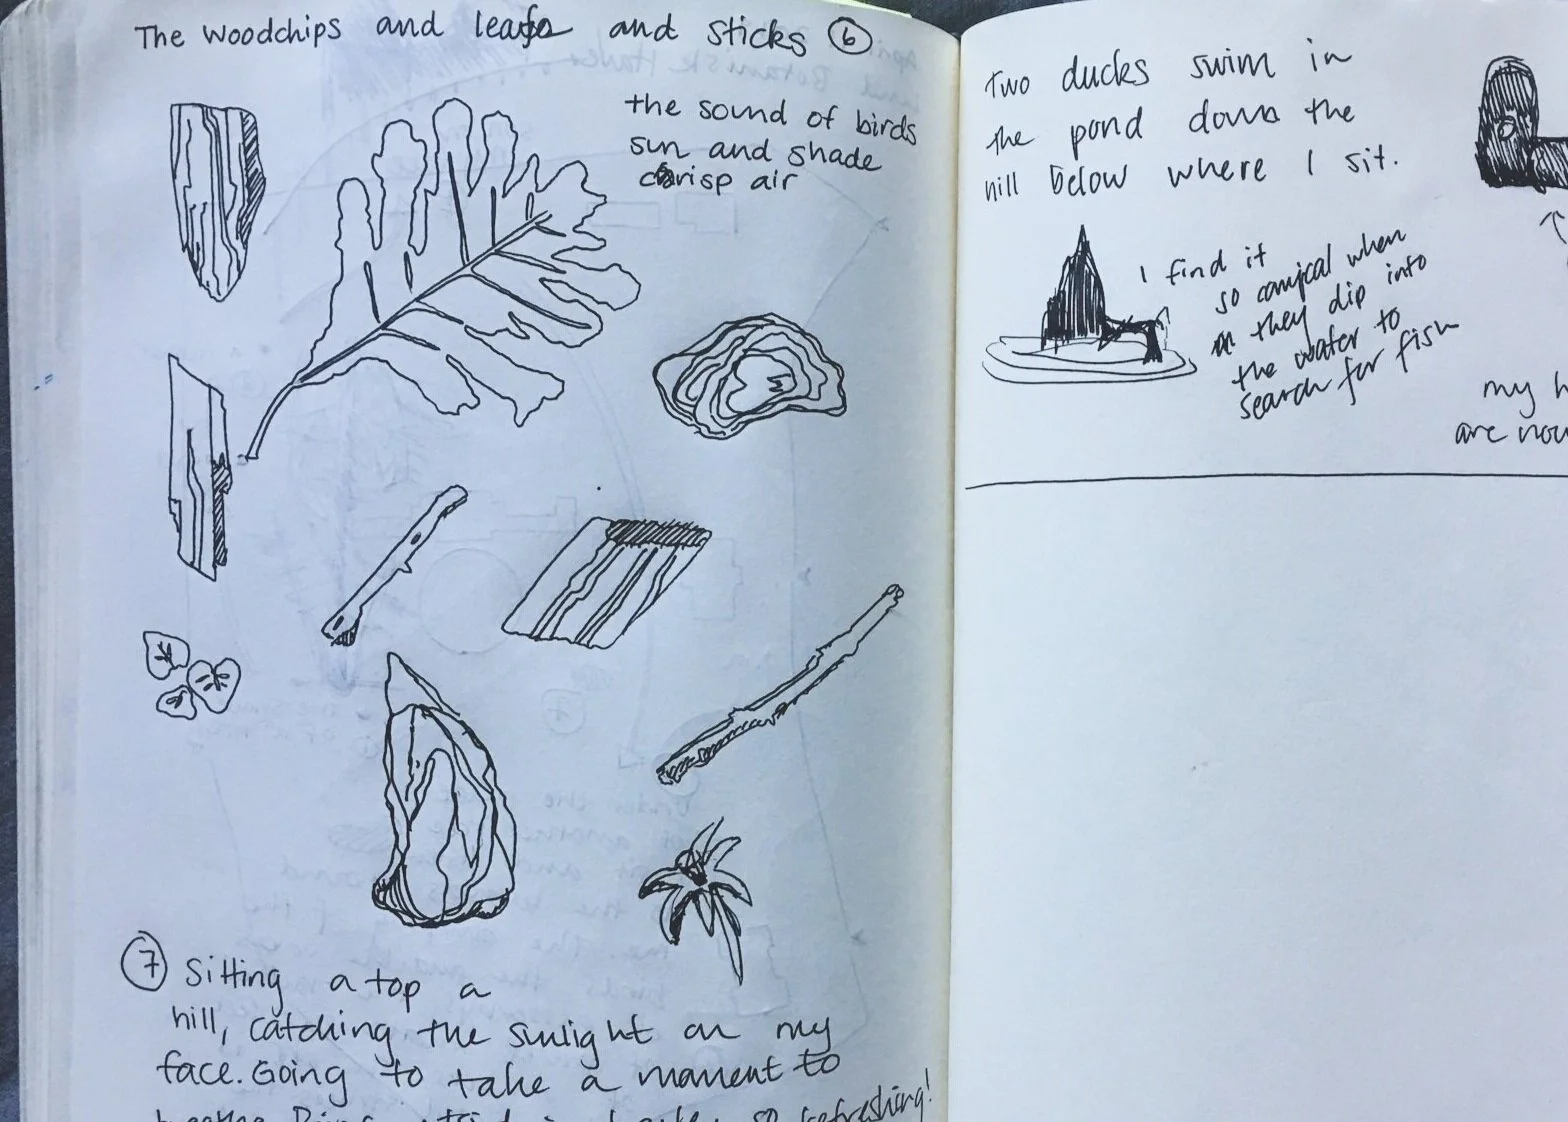 The woodchips and leafs and sticks 6
the sound of birds
sun and shade
crisp air
7 Sitting a top a
hill, catching the sunlight on my
face. Going to take a moment to
so refreshing!
Two ducks swim in
the pond down the
hill below where I sit.
I find it
so comical when
they dip into
the water to
search for fish
my h
are now